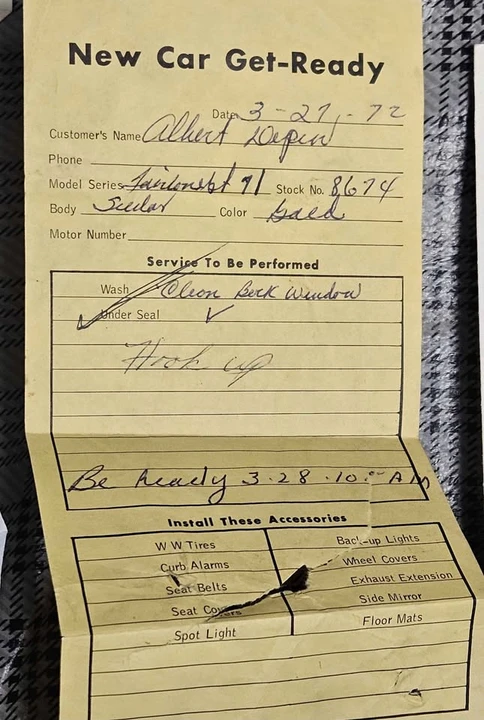 New Car Get-Ready
Date 3-27-72
Customer's Name Albert
Phone
Model Series 71 Stock No. 8674
Body Color Gold
Motor Number
Service To Be Performed
Wash Clean Back Window
Under Seal ✓
Hook up
Be Ready 3-28-10:00 AM
Install These Accessories
W W Tires Back-up Lights
Curb Alarms Wheel Covers
Seat Belts Exhaust Extension
Seat Covers Side Mirror
Spot Light Floor Mats